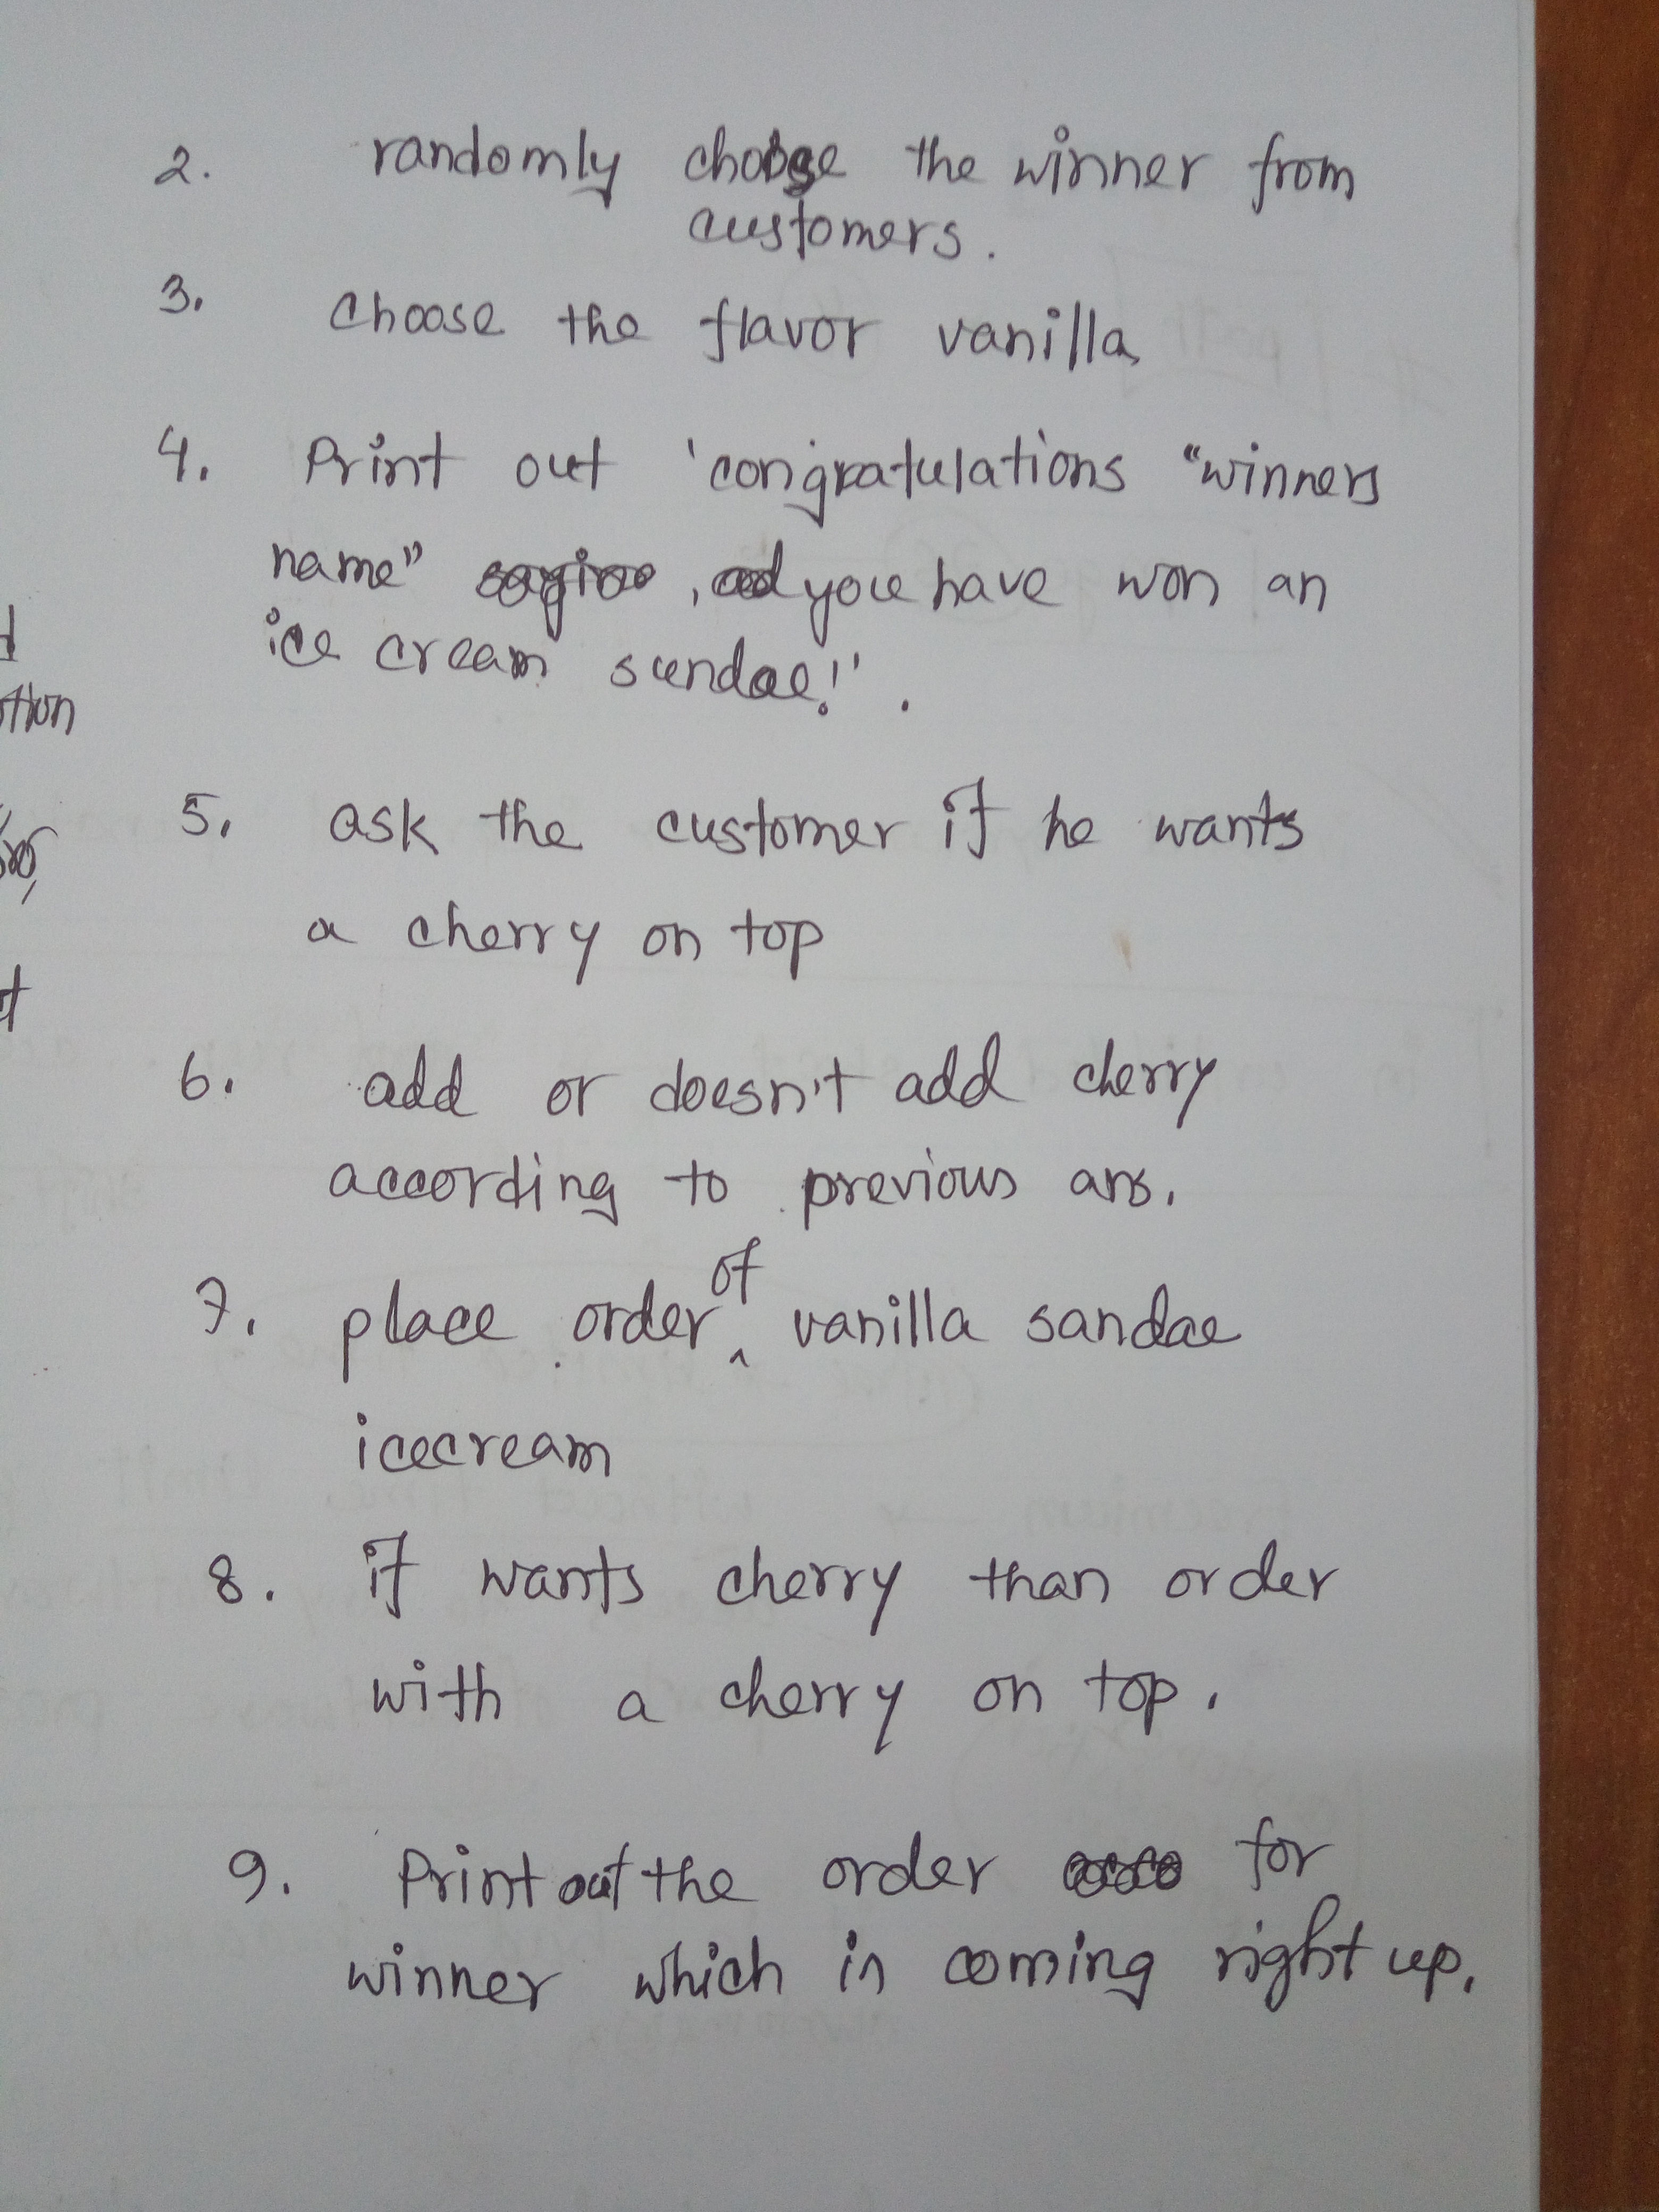 2. randomly choose the winner from
customers.
3. choose the flavor vanilla
4. Print out 'congratulations "winners
name" , you have won an
ice cream sundae!'.
5. ask the customer if he wants
a cherry on top
6. add or doesn't add cherry
according to previous ans.
7. place order of vanilla sandae
icecream
8. if wants cherry than order
with a cherry on top.
9. Print out the order for
winner which in coming right up.